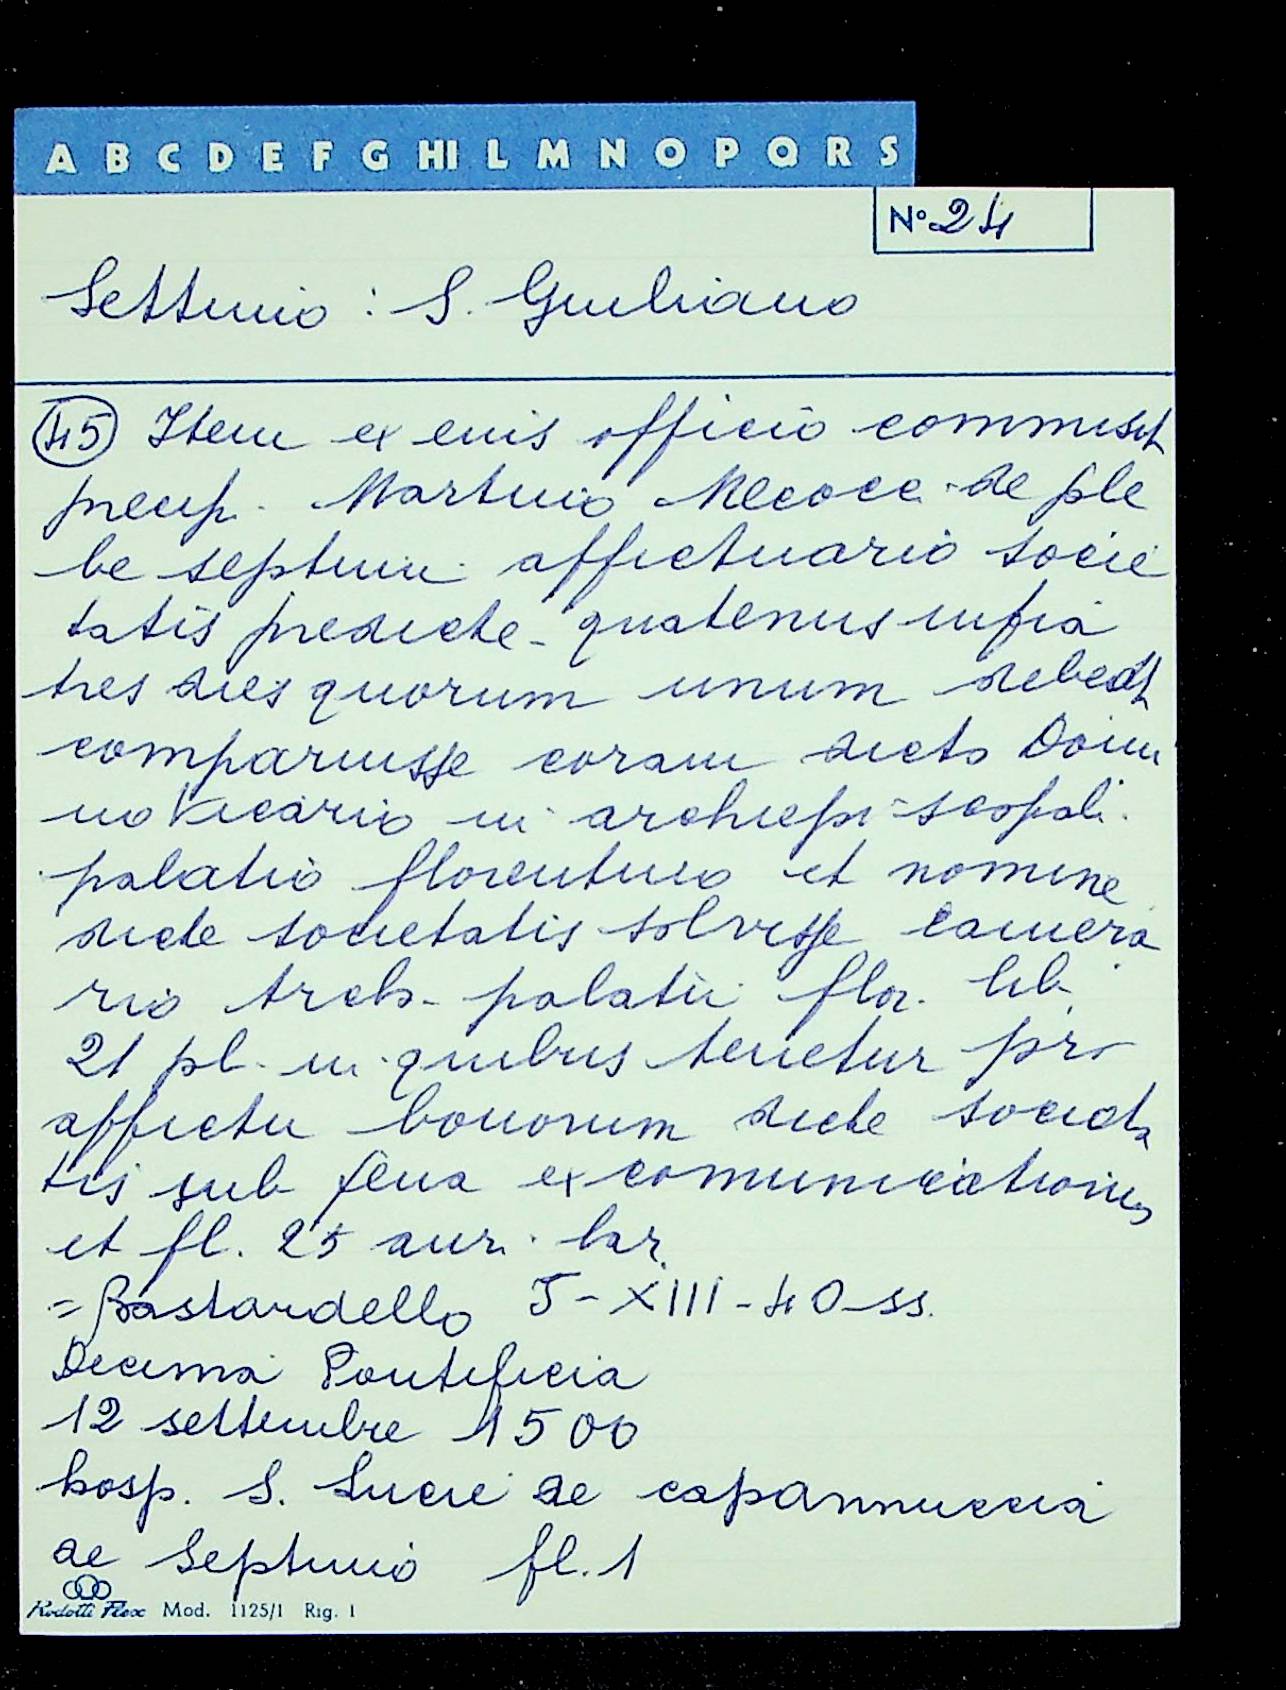 A B C D E F G HI L M N O P Q R S
N° 24
Settimo : S. Giuliano
45 Item ex eius officio commisit
precip. Martino Mecocc. de ple
be septimi affictuario socie
tatis predicte - quatenus infra
tres dies quorum unum debeat
comparuisse coram dicto Domi
no Vicario in archiepi=scopali
palatio florentino et nomine
dicte societatis solvisse camera
rio arch. palatii flor. lib.
21 pl. in quibus tenetur pro
affictu bonorum dicte societa
tis sub pena excomunicationis
et fl. 25 aur. lar.
= Bastardello J - XIII - 40 - ss.
Decima Pontificia
12 settembre 1500
hosp. S. Lucie de capannuccia
de Septimo fl. 1
Rodotti Flex Mod. 1125/1 Rig. 1